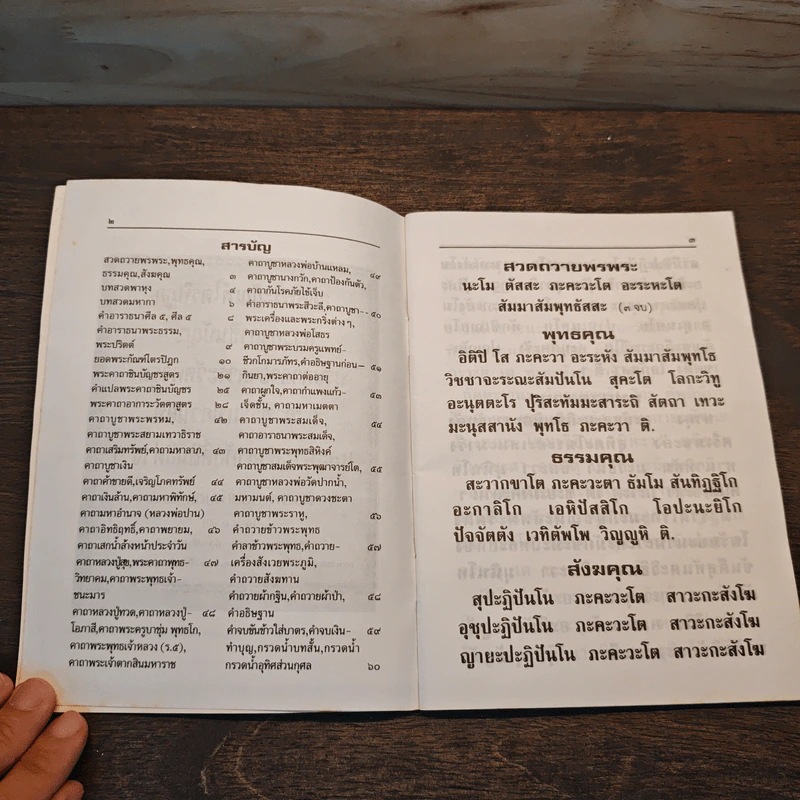 ๒
สารบัญ
สวดถวายพรพระ,พุทธคุณ,
ธรรมคุณ,สังฆคุณ ๓
บทสวดพาหุง ๔
บทสวดมหากา ๖
คำอาราธนาศีล ๕, ศีล ๕ ๘
คำอาราธนาพระธรรม,
พระปริตต์ ๙
ยอดพระกัณฑ์ไตรปิฎก ๑๐
พระคาถาชินบัญชรสูตร ๒๑
คำแปลพระคาถาชินบัญชร ๒๕
พระคาถาอาการะวัตตาสูตร ๒๘
คาถาบูชาพระพรหม, ๔๒
คาถาบูชาพระสยามเทวาธิราช
คาถาเสริมทรัพย์,คาถามหาลาภ, ๔๓
คาถาบูชาเงิน
คาถาค้าขายดี,เจริญโภคทรัพย์ ๔๔
คาถาเงินล้าน,คาถามหาพิทักษ์, ๔๕
คาถามหาอำนาจ (หลวงพ่อปาน)
คาถาอิทธิฤทธิ์,คาถาพยายาม, ๔๖
คาถาเสกน้ำล้างหน้าประจำวัน
คาถาหลวงปู่ศุข,พระคาถาพุทธ- ๔๗
วิทยาคม,คาถาพระพุทธเจ้า-
ชนะมาร
คาถาหลวงปู่ทวด,คาถาหลวงปู่- ๔๘
โอภาสี,คาถาพระครูบาชุ่ม พุทธโก,
คาถาพระพุทธเจ้าหลวง (ร.๕),
คาถาพระเจ้าตากสินมหาราช
คาถาบูชาหลวงพ่อบ้านแหลม, ๔๙
คาถาบูชานางกวัก,คาถาป้องกันตัว,
คาถากันโรคภัยไข้เจ็บ
คำอาราธนาพระสิวะลี,คาถาบูชา- ๕๐
พระเครื่องและพระกริ่งต่างๆ,
คาถาบูชาหลวงพ่อโสธร
คาถาบูชาพระบรมครูแพทย์-
ชีวกโกมารภัทร,คำอธิษฐานก่อน- ๕๑
กินยา,พระคาถาต่ออายุ
คาถาผูกใจ,คาถากำแพงแก้ว- ๕๓
เจ็ดชั้น, คาถามหาเมตตา
คาถาบูชาพระสมเด็จ, ๕๔
คาถาอาราธนาพระสมเด็จ,
คาถาบูชาพระพุทธสิหิงค์
คาถาบูชาสมเด็จพระพุฒาจารย์โต, ๕๕
คาถาบูชาหลวงพ่อวัดปากน้ำ,
มหามนต์, คาถาบูชาดวงชะตา
คาถาบูชาพระราหู, ๕๖
คำถวายข้าวพระพุทธ
คำลาข้าวพระพุทธ,คำถวาย- ๕๗
เครื่องสังเวยพระภูมิ,
คำถวายสังฆทาน
คำถวายผ้ากฐิน,คำถวายผ้าป่า, ๕๘
คำอธิษฐาน
คำจบขันข้าวใส่บาตร,คำจบเงิน- ๕๙
ทำบุญ,กรวดน้ำบทสั้น,กรวดน้ำ
กรวดน้ำอุทิศส่วนกุศล ๖๐
๓
สวดถวายพรพระ
นะโม ตัสสะ ภะคะวะโต อะระหะโต
สัมมาสัมพุทธัสสะ (๓ จบ)
พุทธคุณ
อิติปิ โส ภะคะวา อะระหัง สัมมาสัมพุทโธ
วิชชาจะระณะสัมปันโน สุคะโต โลกะวิทู
อะนุตตะโร ปุริสะทัมมะสาระถิ สัตถา เทวะ
มะนุสสานัง พุทโธ ภะคะวา ติ.
ธรรมคุณ
สะวากขาโต ภะคะวะตา ธัมโม สันทิฏฐิโก
อะกาลิโก เอหิปัสสิโก โอปะนะยิโก
ปัจจัตตัง เวทิตัพโพ วิญญูหิ ติ.
สังฆคุณ
สุปะฏิปันโน ภะคะวะโต สาวะกะสังโฆ
อุชุปะฏิปันโน ภะคะวะโต สาวะกะสังโฆ
ญายะปะฏิปันโน ภะคะวะโต สาวะกะสังโฆ